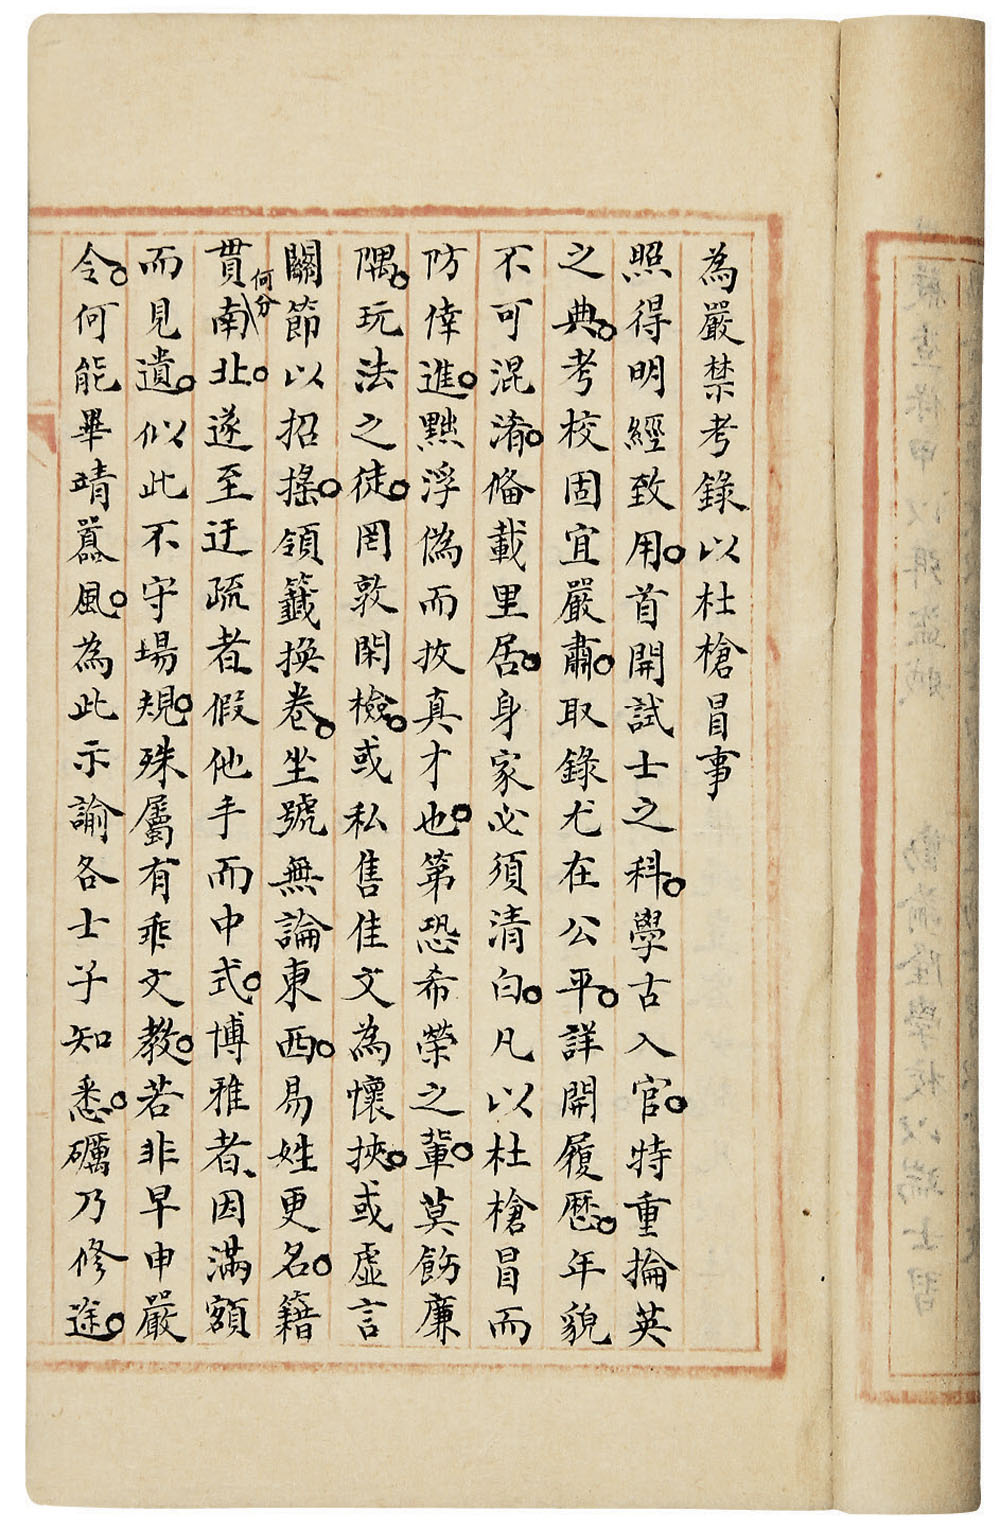 為嚴禁考錄以杜槍冒事
照得明經致用首開試士之科學古入官特重掄英
之典考校固宜嚴肅取錄尤在公平詳開履歷年貌
不可混淆俻載里居身家必須清白凡以杜槍冒而
防倖進黜浮偽而拔真才也第恐希榮之輩莫飭廉
隅玩法之徒罔敦閑檢或私售佳文為懷挾或虛言
關節以招搖領籤換卷坐號無論東西易姓更名籍
貫何分南北遂至迂疏者假他手而中式博雅者因滿額
而見遺似此不守場規殊屬有乖文教若非早申嚴
令何能畢靖囂風為此示諭各士子知悉礪乃修途